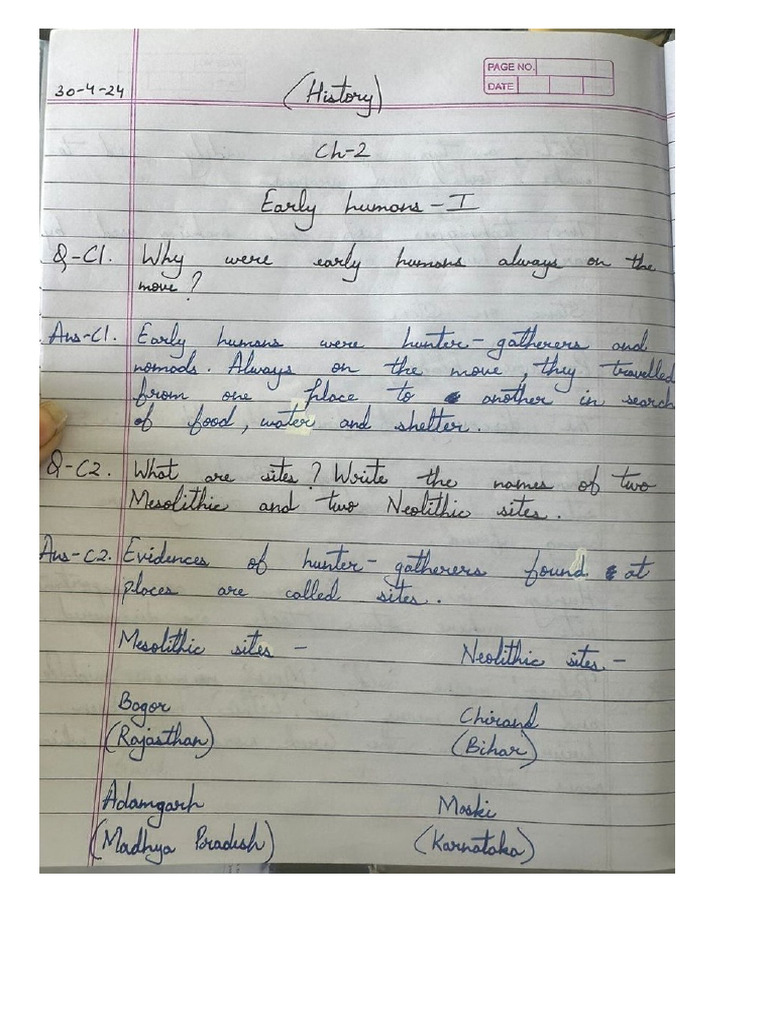 PAGE NO.
DATE
30-4-24
(History)
Ch-2
Early humans - I
Q-C1. Why were early humans always on the
move?
Ans-C1. Early humans were hunter-gatherers and
nomads. Always on the move, they travelled
from one place to another in search
of food, water and shelter.
Q-C2. What are sites? Write the names of two
Mesolithic and two Neolithic sites.
Ans-C2. Evidences of hunter-gatherers found at
places are called sites.
Mesolithic sites - Neolithic sites -
Bagor Chirand
(Rajasthan) (Bihar)
Adamgarh Maski
(Madhya Pradesh) (Karnataka)